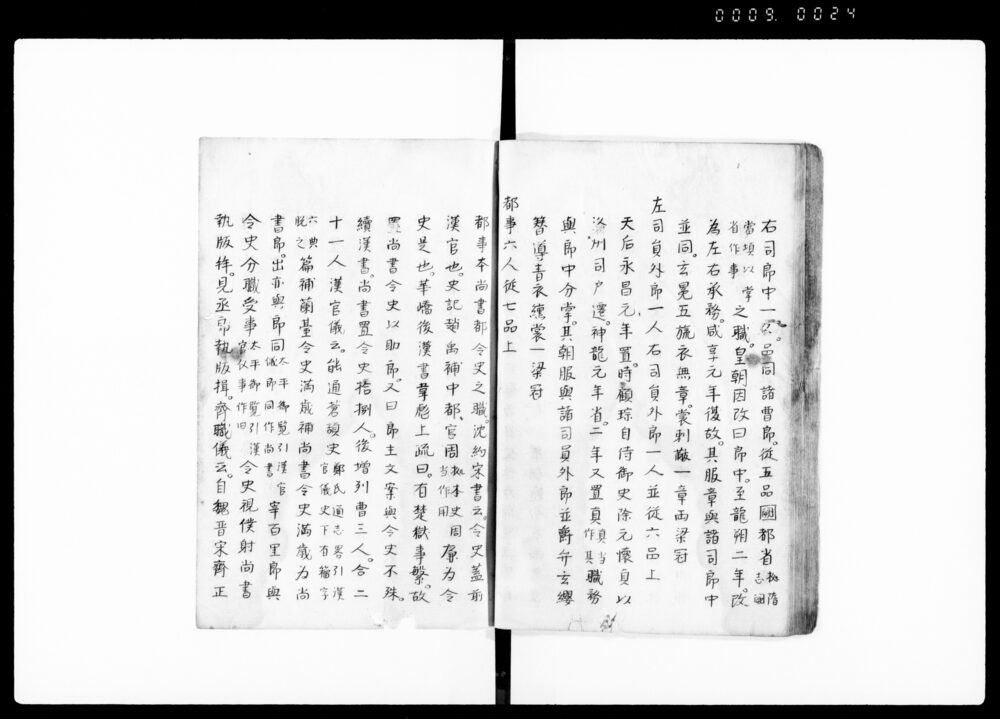 0009. 0024
右司郎中一人品同諸曹郎。從五品闕都省 按隋志闕
當頊以掌省作事 之職。皇朝因改曰郎中。至龍朔二年。改
為左右承務。咸亨元年復故。其服章與諸司郎中
並同。玄冕五旒衣無章。裳刺黻一章两梁冠
左司員外郎一人右司員外郎一人並從六品上
天后永昌元年置。時顧琮自侍御史除元懷貞以
洛州司户遷。神龍元年省。二年又置頁 頁當作其 職務
與郎中分掌。其朝服與諸司員外郎並爵弁玄纓
簪導青衣纁裳一梁冠
都事六人從七品上
都事本尚書都令史之職。沈約宋書云。令史盖前
漢官也。史記趙禹補中都官周 按本史周當作用 廉為令
史是也。華嶠後漢書韋彪上疏曰。有楚獄事繁。故
置尚書令史以助郎。又曰郎主文案與令史不殊。
續漢書。尚書置令史拾捌人。後增列曹三人。合二
十一人漢官儀云。能通蒼頡史 鄭氏通志畧引漢官儀史下有籀字
六典脱之 篇補蘭臺令史滿歲補尚書令史滿歲為尚
書郎。出亦與郎同 太平御覽引漢官儀郎同作尚書 宰百里郎與
令史分職受事 太平御覽引漢官仪事作旧 令史視僕射尚書
執版拜。見丞郎執版揖。齊職儀云。自魏晋宋齊正